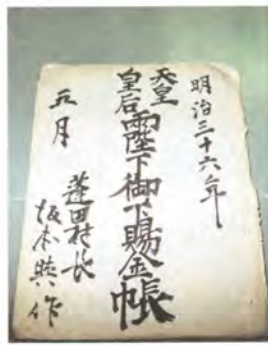 明治三十六年
天皇
皇后
両陛下御下賜金帳
五月
蓬田村長
坂本興作